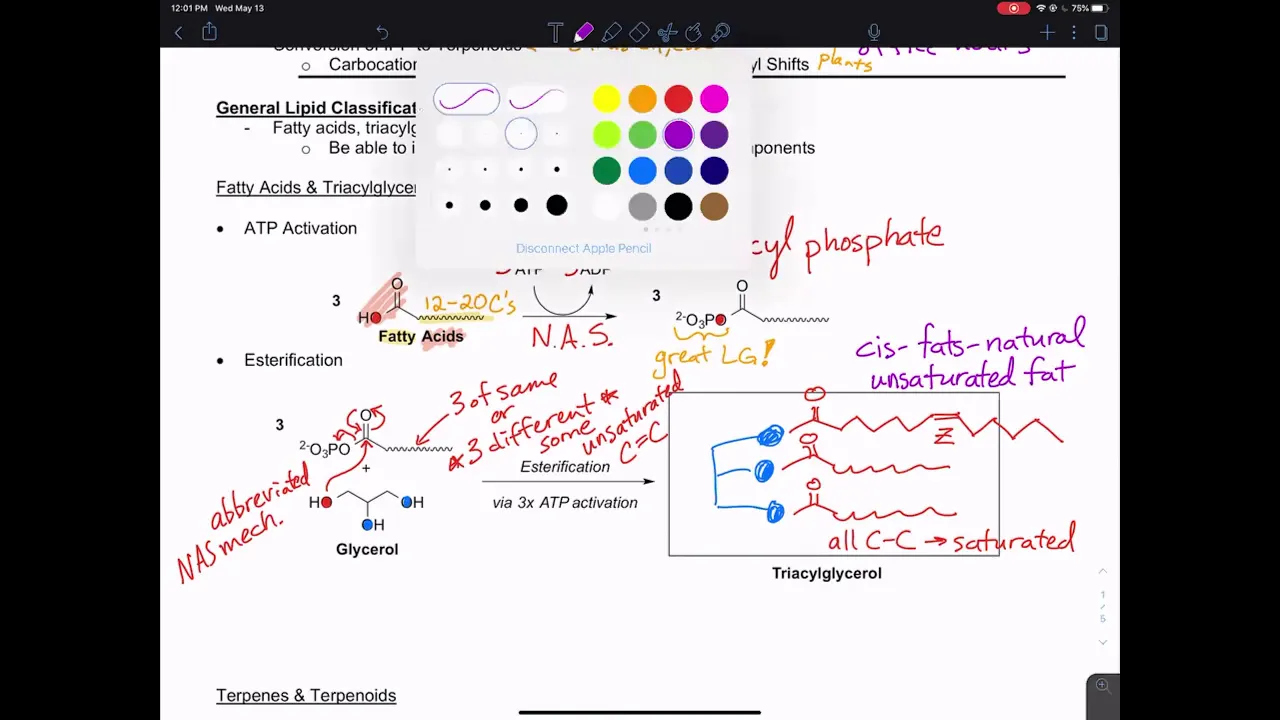 12:01 PM Wed May 13
75%
Conversion of IPP to Terpenoids
office hours
Carbocation
yl Shifts
plants
General Lipid Classificat
- Fatty acids, triacylg
Be able to i
ponents
Fatty Acids & Triacylglycer
Disconnect Apple Pencil
• ATP Activation
cyl phosphate
ATP
ADP
3
O
HO
12-20 C's
Fatty Acids
N.A.S.
3
O
2-O3PO
great LG!
cis-fats-natural
unsaturated fat
• Esterification
3 of same
or
*3 different*
some
unsaturated
C=C
3
O
2-O3PO
+
HO
OH
OH
Glycerol
abbreviated
NAS mech.
Esterification
via 3x ATP activation
O
Z
O
O
all C-C → saturated
Triacylglycerol
1
/
5
Terpenes & Terpenoids